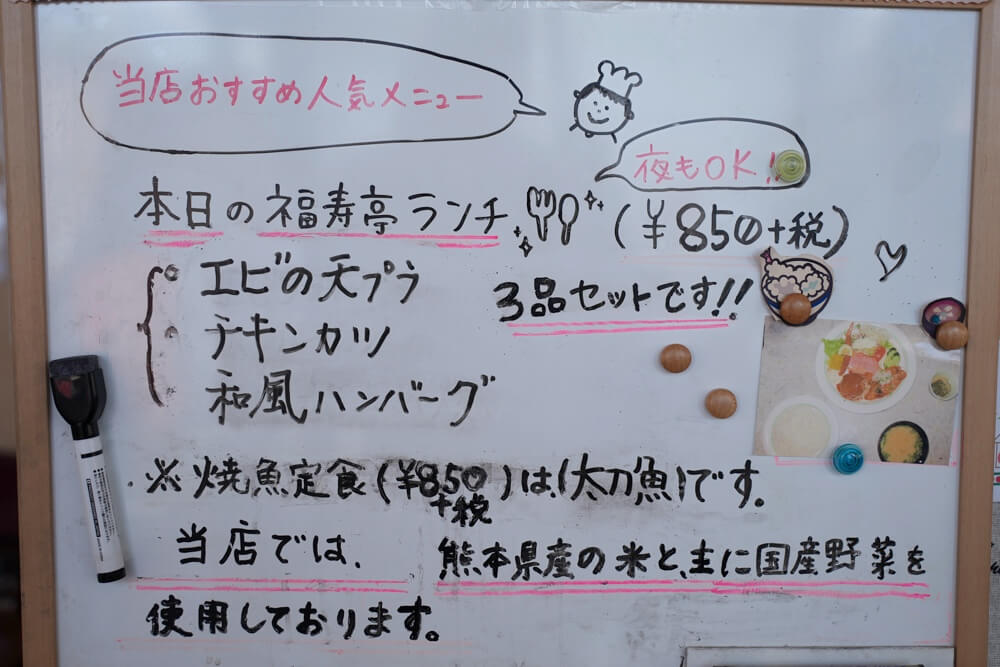 当店おすすめ人気メニュー
夜もOK!!
本日の福寿亭ランチ (¥850+税)
エビの天プラ
3品セットです!!
チキンカツ
和風ハンバーグ
※焼魚定食(¥850+税)は、(太刀魚)です。
当店では、熊本県産の米と、主に国産野菜を
使用しております。